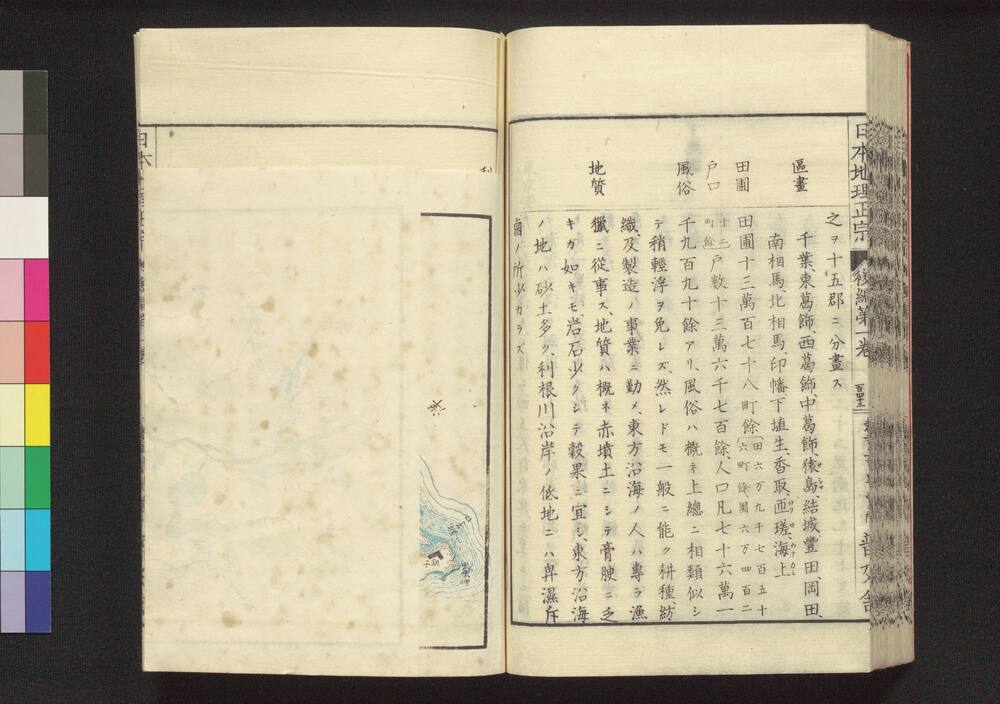 日本地理正宗 後編第一巻
之ヲ十五郡ニ分畫ス
區畫
千葉、東葛飾、西葛飾、中葛飾、猿島、結城、豐田、岡田、
南相馬、北相馬、印幡、下埴生、香取、匝瑳、海上
田圃
田圃十三萬百七十八町餘(田六万九千七百五十
六町餘圃六万四百二
戸口
十二
町餘
戸數十三萬六千七百餘、人口凡七十六萬一
風俗
千九百九十餘アリ、風俗ハ概子上總ニ相類似シ
テ稍輕浮ヲ免レズ、然レドモ一般ニ能ク耕種、紡
織、及製造ノ事業ニ勤メ、東方沿海ノ人ハ專ラ漁
地質
獵ニ從事ス、地質ハ概子赤墳土ニシテ膏腴ニ乏
キガ如キモ、岩石少クシテ穀果ニ宜シ、東方沿海
ノ地ハ砂土多ク、利根川沿岸ノ低地ニハ卑濕斥
鹵ノ所少カラズ
日本